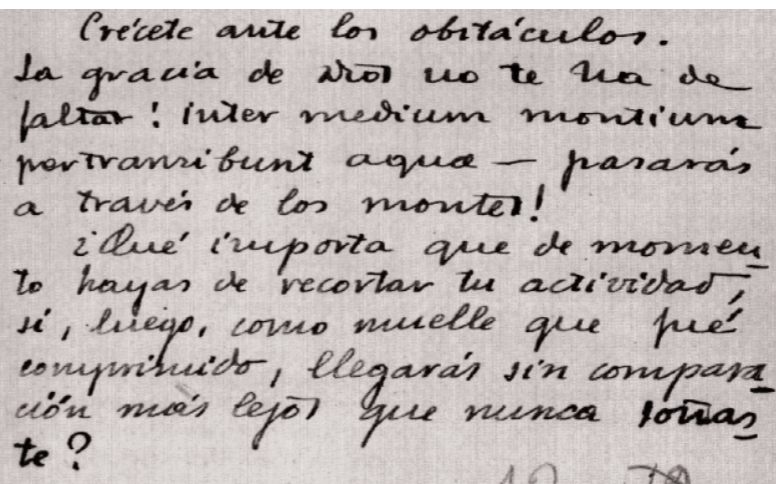 Crécete ante los obstáculos.
La gracia de Dios no te ha de
faltar: inter medium montium
pertransibunt aquæ — pasarás
a través de los montes!
¿Qué importa que de momen-
to hayas de recortar tu actividad,
si, luego, como muelle que fué
comprimido, llegarás sin compara-
ción más lejos que nunca soñas-
te?